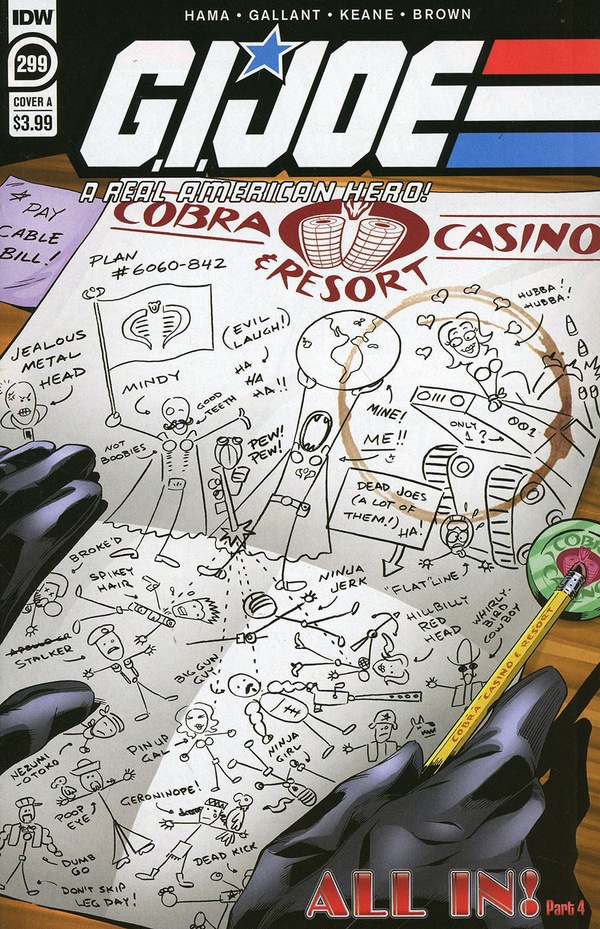 HAMA • GALLANT • KEANE • BROWN
IDW
299
COVER A
$3.99
G.I.JOE
A REAL AMERICAN HERO!
* PAY
CABLE
BILL!
COBRA CASINO
& RESORT
PLAN
#6060-842
JEALOUS
METAL
HEAD
MINDY
GOOD
TEETH
NOT
BOOBIES
(EVIL
LAUGH!)
HA
HA
HA!!
PEW!
PEW!
MINE!
ME!!
HUBBA!
HUBBA!
ONLY
1?
001
DEAD JOES
(A LOT OF
THEM!)
HA!
"FLAT"LINE
BROKE'D
SPIKEY
HAIR
STALKER
NINJA
JERK
HILLBILLY
RED
HEAD
WHIRLY-
BIRD
COWBOY
BIG GUN
GUY
NEZUMI
OTOKO
PINUP
GAL
NINJA
GIRL
POOP
EYE
GERONINOPE!
DUMB
GO
DEAD KICK
DON'T SKIP
LEG DAY!
COBRA
COBRA CASINO & RESORT
ALL IN! Part 4